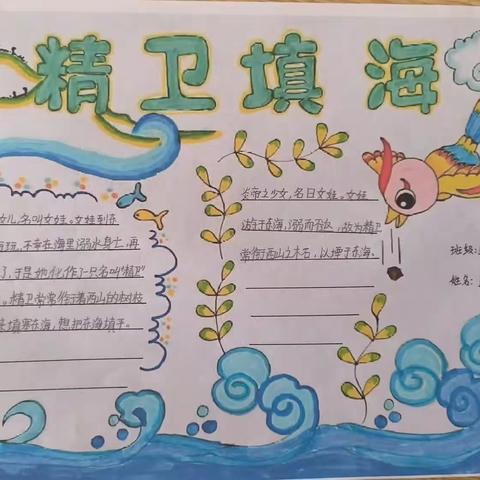 精卫填海
女儿,名叫女娃。女娃到在
海玩,不幸在海里溺水身亡,再
了,于是她化作了只名叫"精卫"
。精卫常常衔着西山的树枝
填塞东海,想把东海填平。
炎帝之少女,名曰女娃。女娃
游于东海,溺而不返,故为精卫
常衔西山之木石,以堙于东海。
班级:
姓名: